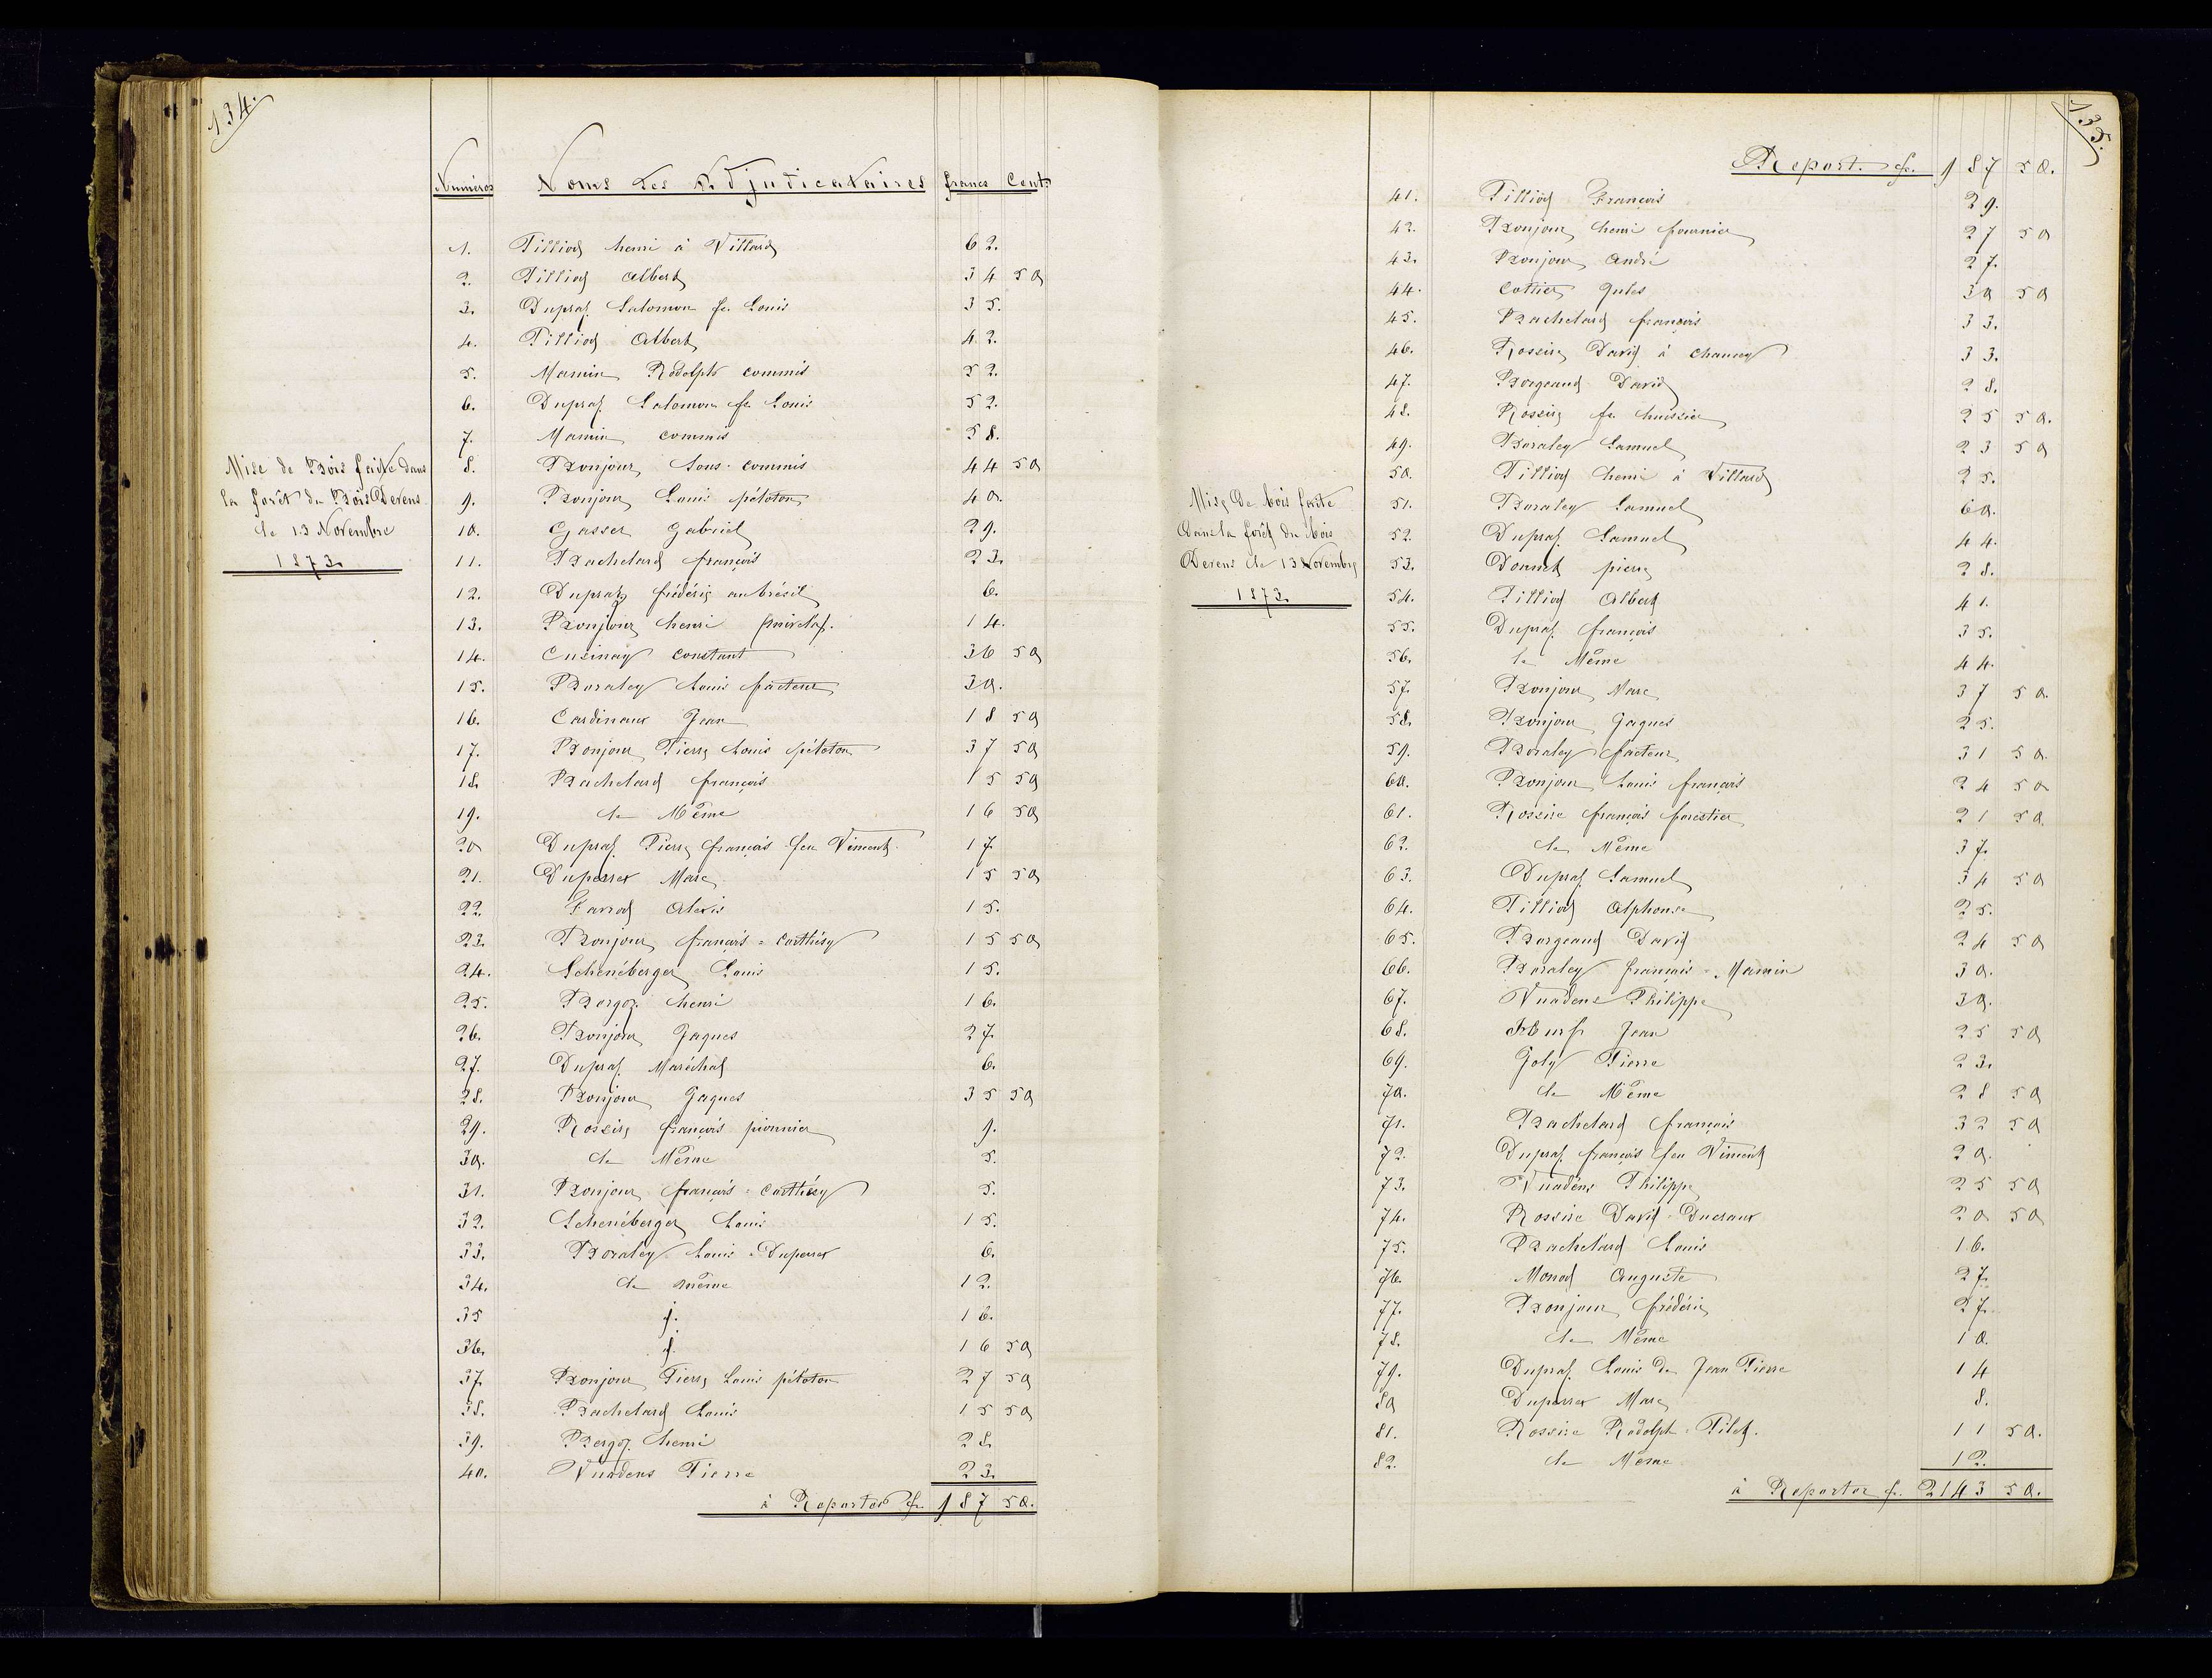 134.
Numéros Noms des Adjudicataires francs Cent.
Mise de Bois faite dans
la forêt du Bois Devens
le 13 Novembre
1873.
1. Pilliod henri à Villard 62.
2. Pilliod Albert 34 50
3. Dupraz Salomon fr. Louis 35.
4. Pilliod Albert 42.
5. Mamin Rodolph commis 52.
6. Dupraz Salomon fr. Louis 52.
7. Mamin commis 58.
8. Bonjour Sous-commis 44 50
9. Bonjour Louis pétoton 40.
10. Gasser Gabriel 29.
11. Bachelard françois 23.
12. Dupraz frédéric au brésil 6.
13. Bonjour henri 14.
14. Cusinay constant 36 50
15. Boraley Louis facteur 30.
16. Cardinaux Jean 18 50
17. Bonjour Pierre Louis pétoton 37 50
18. Bachelard françois 15 50
19. le Même 16 50
20 Dupraz Pierre françois feu Vincent 17.
21. Duperrex Marc 15 50
22. Favrod Alexis 15.
23. Bonjour françois = Carthésy 15 50
24. Schenéberger Louis 15.
25. Borgoz henri 16.
26. Bonjour Jaques 27.
27. Dupraz Maréchal 6.
28. Bonjour Jaques 35 50
29. Rossire françois pionnier 9.
30. le Même 5.
31. Bonjour françois = Carthésy 5.
32. Schenéberger Louis 15.
33. Boraley Louis = Duperrex 6.
34. le même 12.
35 16.
36. 16 50
37. Bonjour Pierre Louis pétoton 27 50
38. Bachelard Louis 15 50
39. Bergoz henri 28.
40. Vuadens Pierre 23.
à Reporter fr. 187 50.
135.
Report. fr. 187 50.
Mise de bois faite
Dans la forêt du bois
Devens le 13 Novembre
1873.
41. Pilliod François 29.
42. Bonjour henri fournier 27 50
43. Bonjour André 27.
44. Cottier Jules 30 50
45. Bachelard françois 33.
46. Rossire David à chancey 33.
47. Borgeaud David 28.
48. Rossire fr. huissier 25 50.
49. Boraley Samuel 23 50
50. Pilliod henri à Villard 25.
51. Boraley Samuel 60.
52. Dupraz Samuel 44.
53. Donnet pierre 28.
54. Pilliod Albert 41.
55. Dupraz françois 35.
56. le Même 44.
57. Bonjour Marc 37 50.
58. Bonjour Jaques 25.
59. Boraley facteur 31 50.
60. Bonjour Louis françois 24 50
61. Rossire françois forestier 21 50.
62. le Même 37.
63. Dupraz Samuel 34 50
64. Pilliod Alphonse 25.
65. Borgeaud David 24 50
66. Boraley françois = Mamin 30.
67. Vuadens Philippe 30.
68. Jean 25 50
69. Joly Pierre 23.
70. le Même 28 50
71. Bachelard françois 32 50
72. Dupraz françois feu Vincent 20.
73. Vuadens Philippe 25 50
74. Rossire David = Ducraux 20 50
75. Bachelard Louis 16.
76. Monod Auguste 27.
77. Bonjour frédéric 27.
78. le Même 10.
79. Dupraz Louis De Jean Pierre 14
80 Duperrex Marc 8.
81. Rossire Rodolph = Pilet. 11 50.
82. le Même 12.
à Reporter fr. 2143 50.